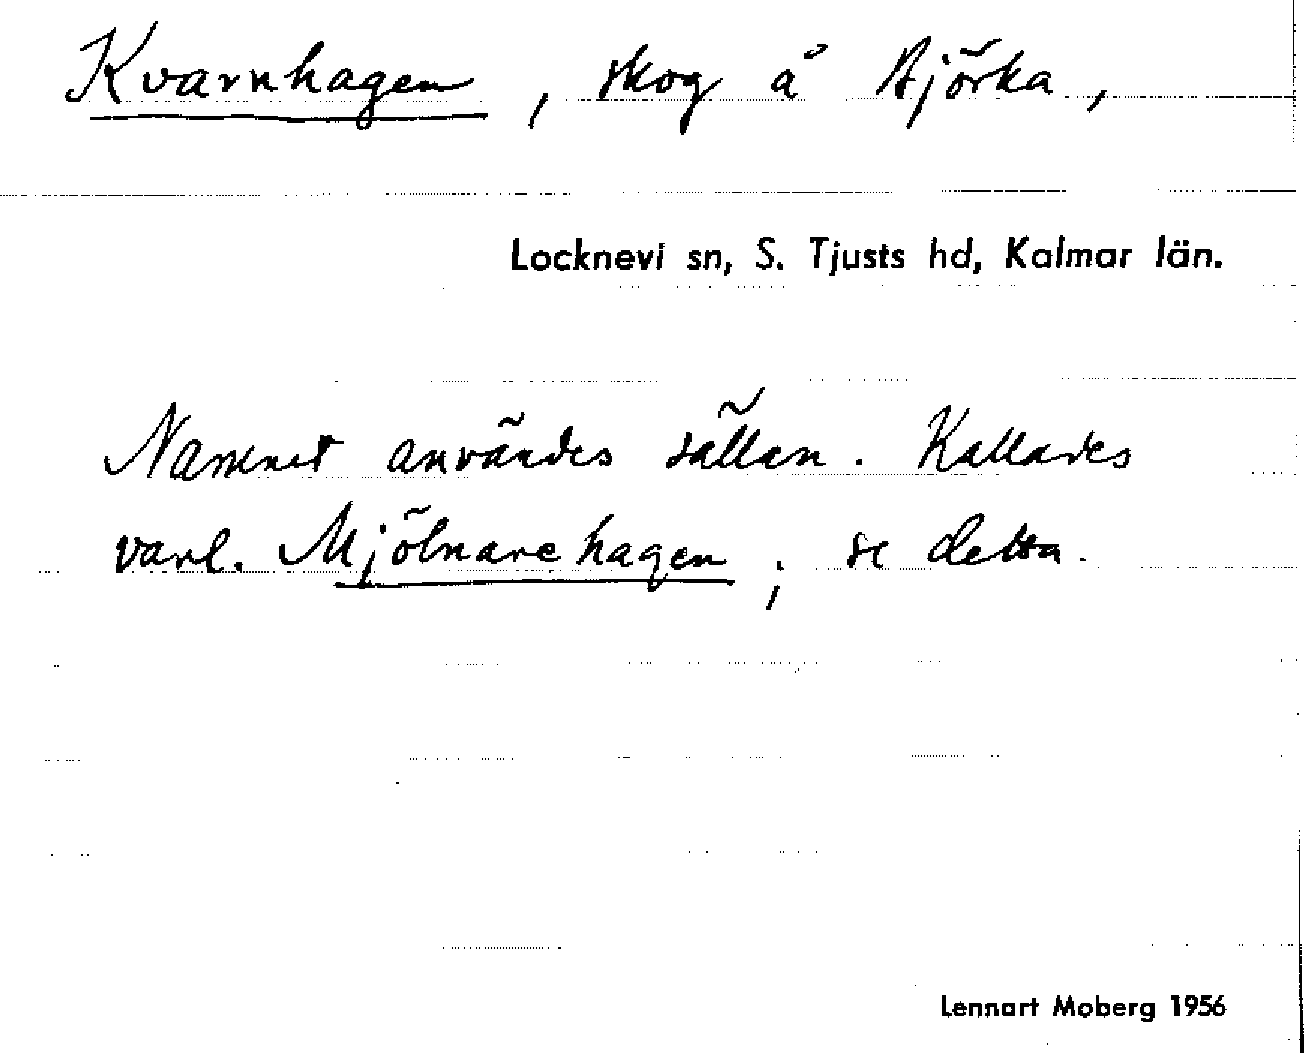 Kvarnhagen, skog å Ajörka,
Locknevi sn, S. Tjusts hd, Kalmar län.
Namnet användes sällan. Kallades
vanl. Mjölnarehagen; se detta.
Lennart Moberg 1956